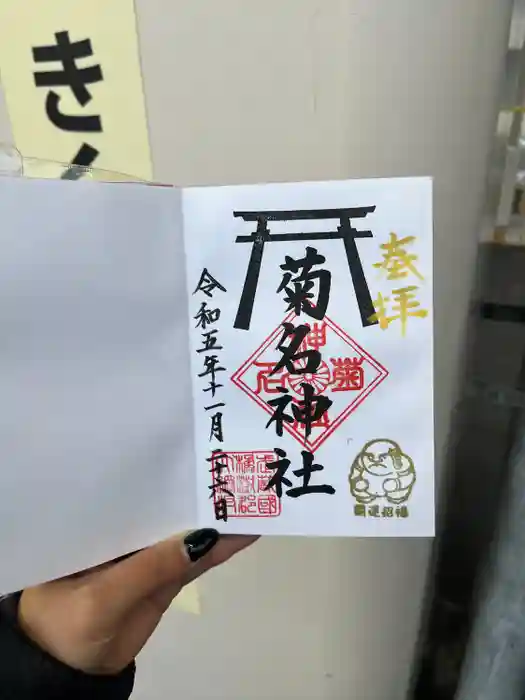 きく
奉拝
菊名神社
令和五年十一月二十六日
開運招福